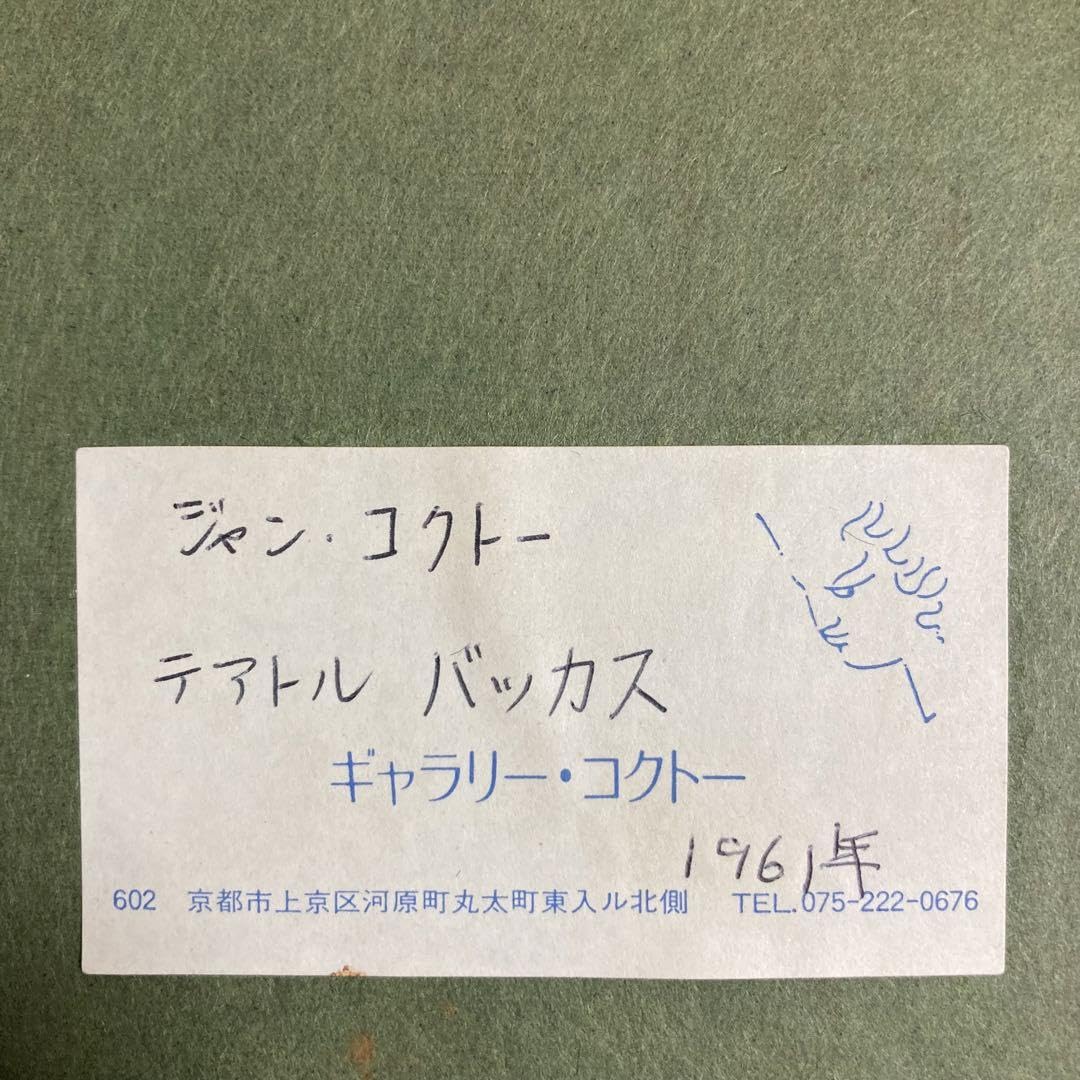 ジャン・コクトー
テアトル バッカス
ギャラリー・コクトー
1961年
602 京都市上京区河原町丸太町東入ル北側 TEL.075-222-0676